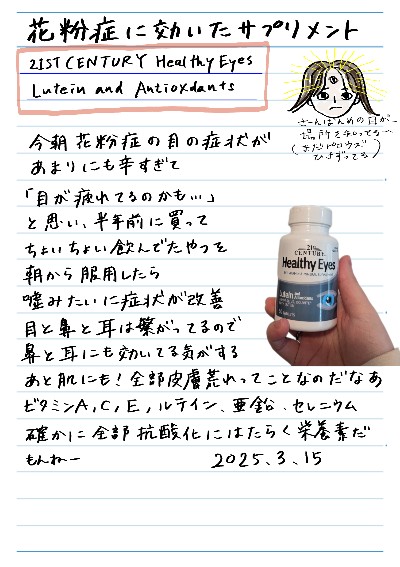 花粉症に効いたサプリメント
21ST CENTURY Healthy Eyes
Lutein and Antioxdants
さーばんめの目が
場所を知ってる…
今朝花粉症の目の症状が
あまりにも辛すぎて
「目が疲れてるのかも…」
と思い、半年前に買って
ちょいちょい飲んでたやつを
朝から服用したら
嘘みたいに症状が改善
目と鼻と耳は繋がってるので
鼻と耳にも効いてる気がする
あと肌にも！全部皮膚荒れってことなのだなあ
ビタミンA,C,E,ルテイン、亜鉛、セレニウム
確かに全部抗酸化にはたらく栄養素だ
もんねー
2025.3.15
21st
CENTURY
Healthy Eyes
Lutein and